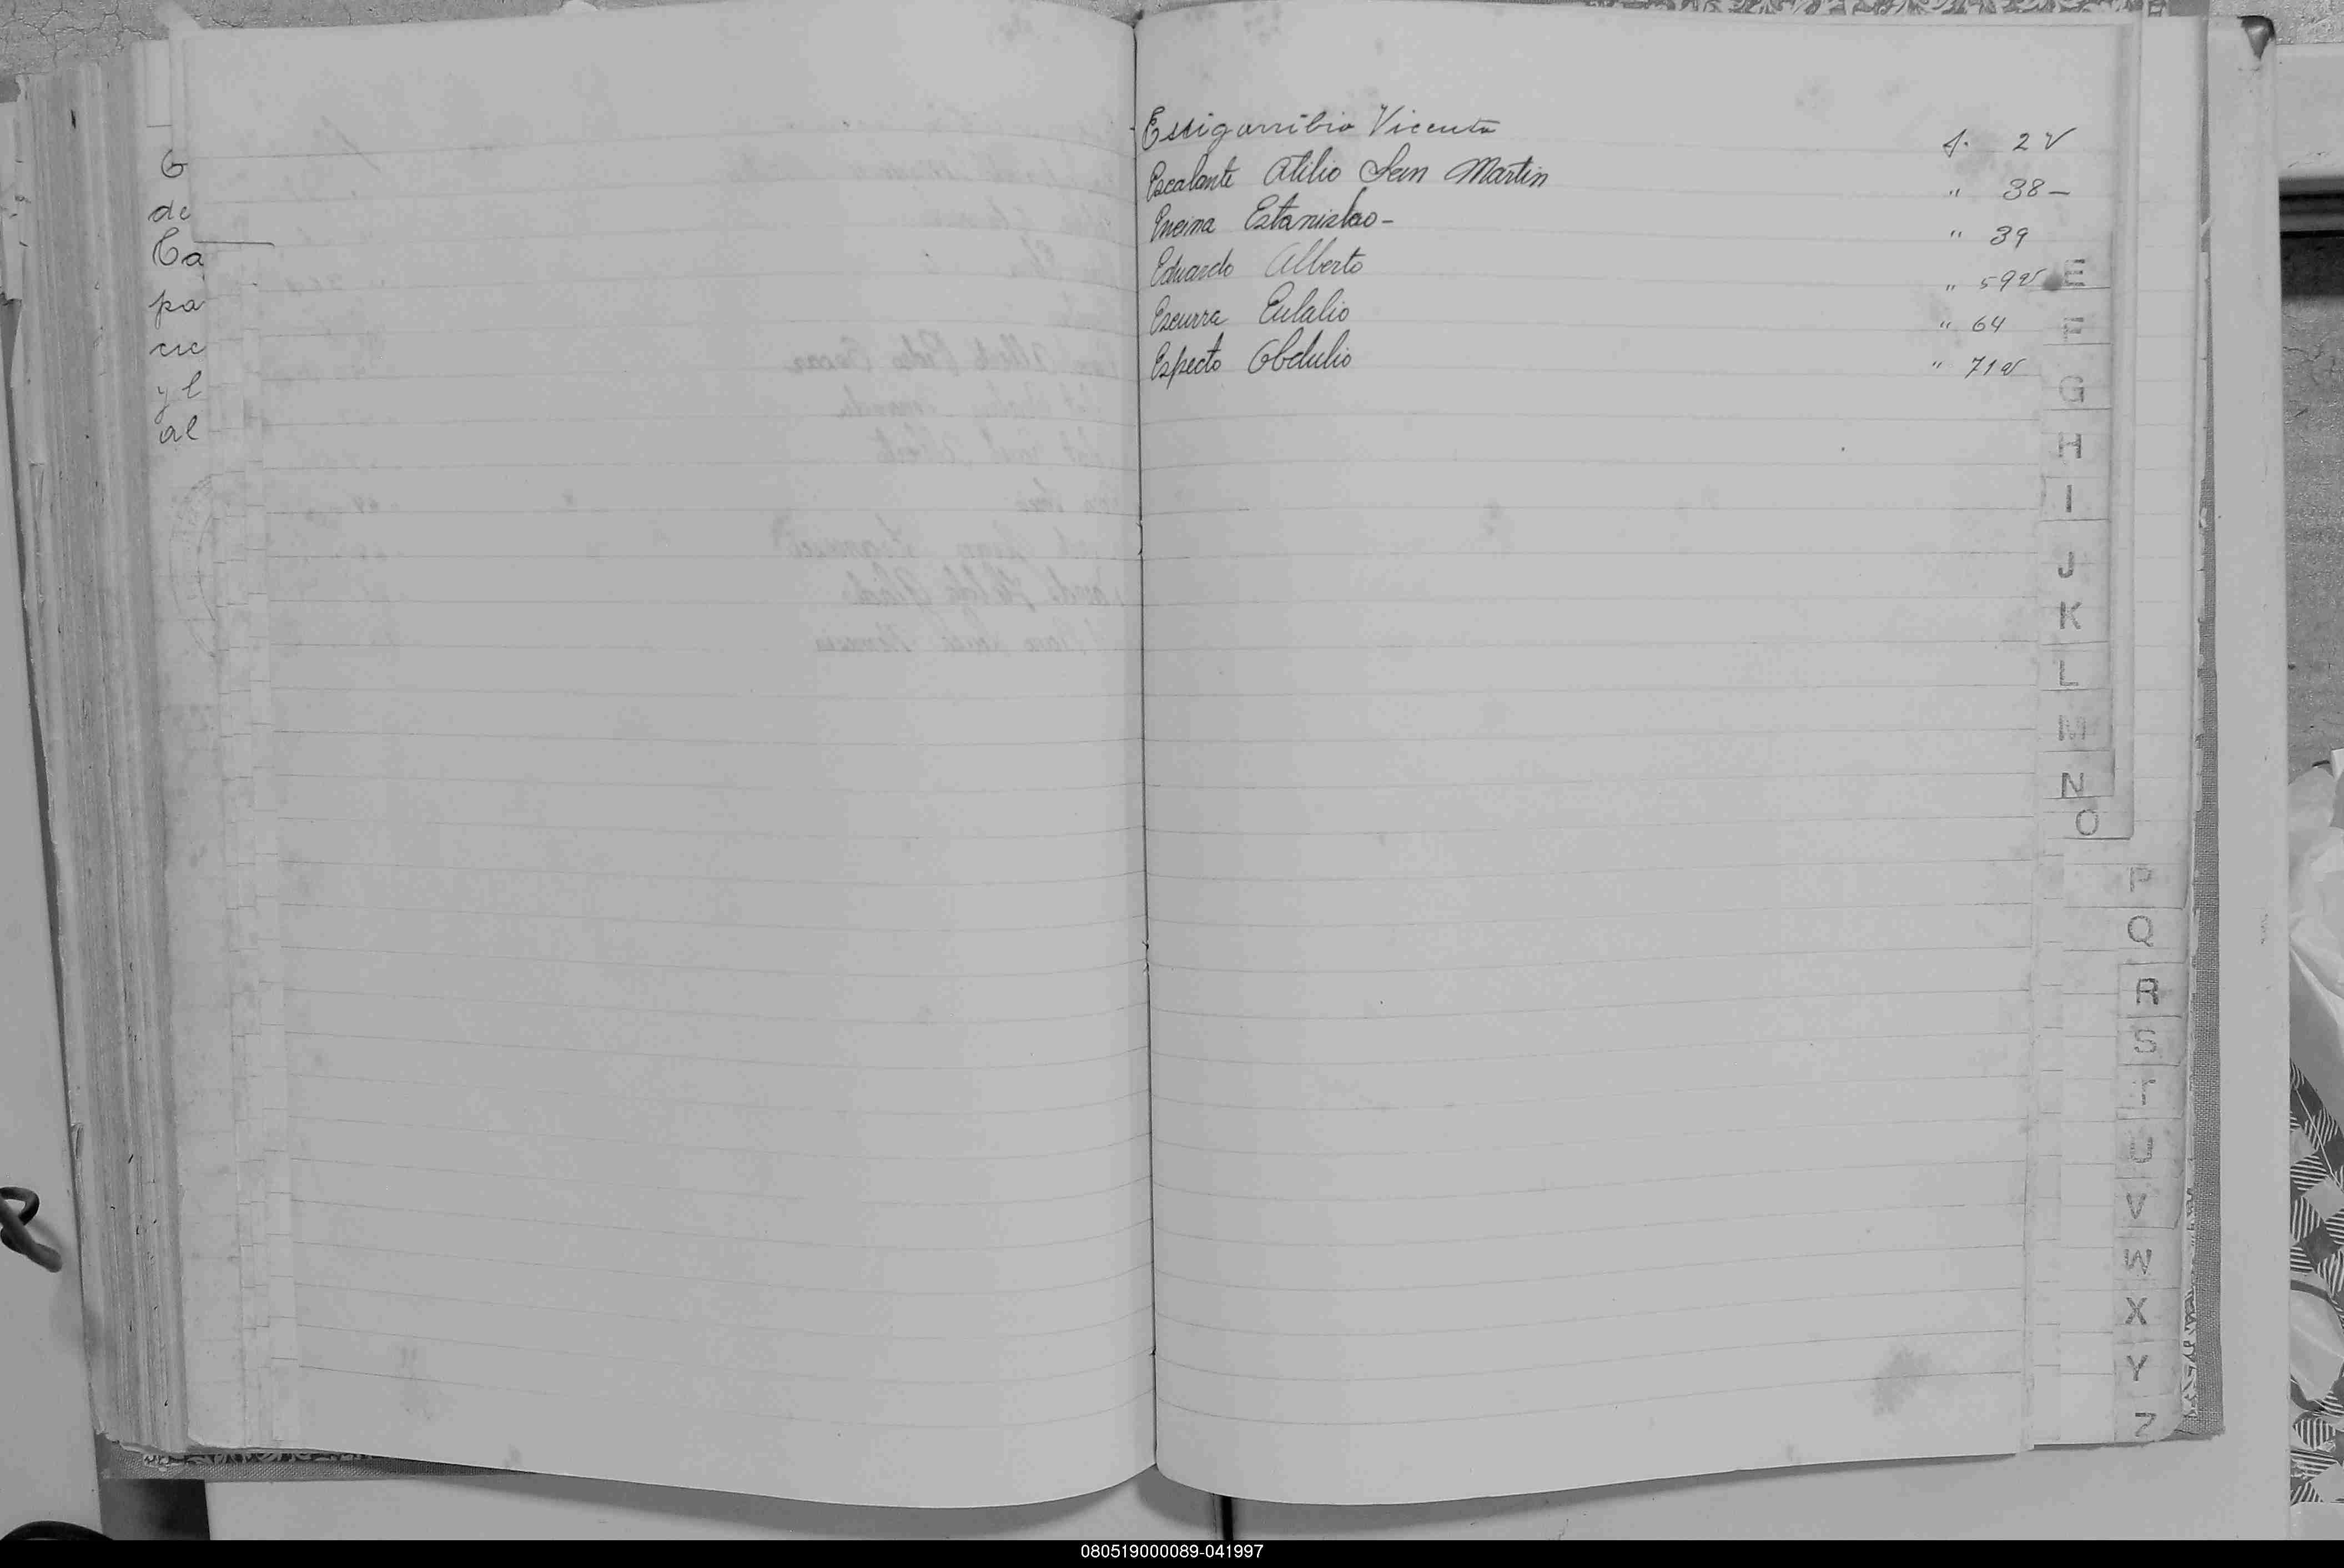 G
de
Ca
pa
cre
y l
al
Essigarribia Vicenta f. 2 v
Escalante Atilio San Martin " 38 -
Encina Estanislao - " 39
Eduardo Alberto " 59 v
Escurra Eulalio " 64
Especto Obdulio " 71 v
E
F
G
H
I
J
K
L
M
N
O
P
Q
R
S
T
U
V
W
X
Y
Z
080519000089-041997